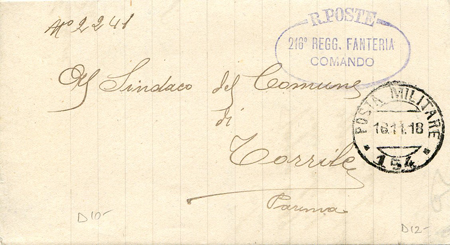 Nº 2241
R. POSTE
216º REGG. FANTERIA
COMANDO
Al Sindaco del Comune
di
Torrile
Parma
POSTA MILITARE
16.11.18
* 154 *
D10-
D12-